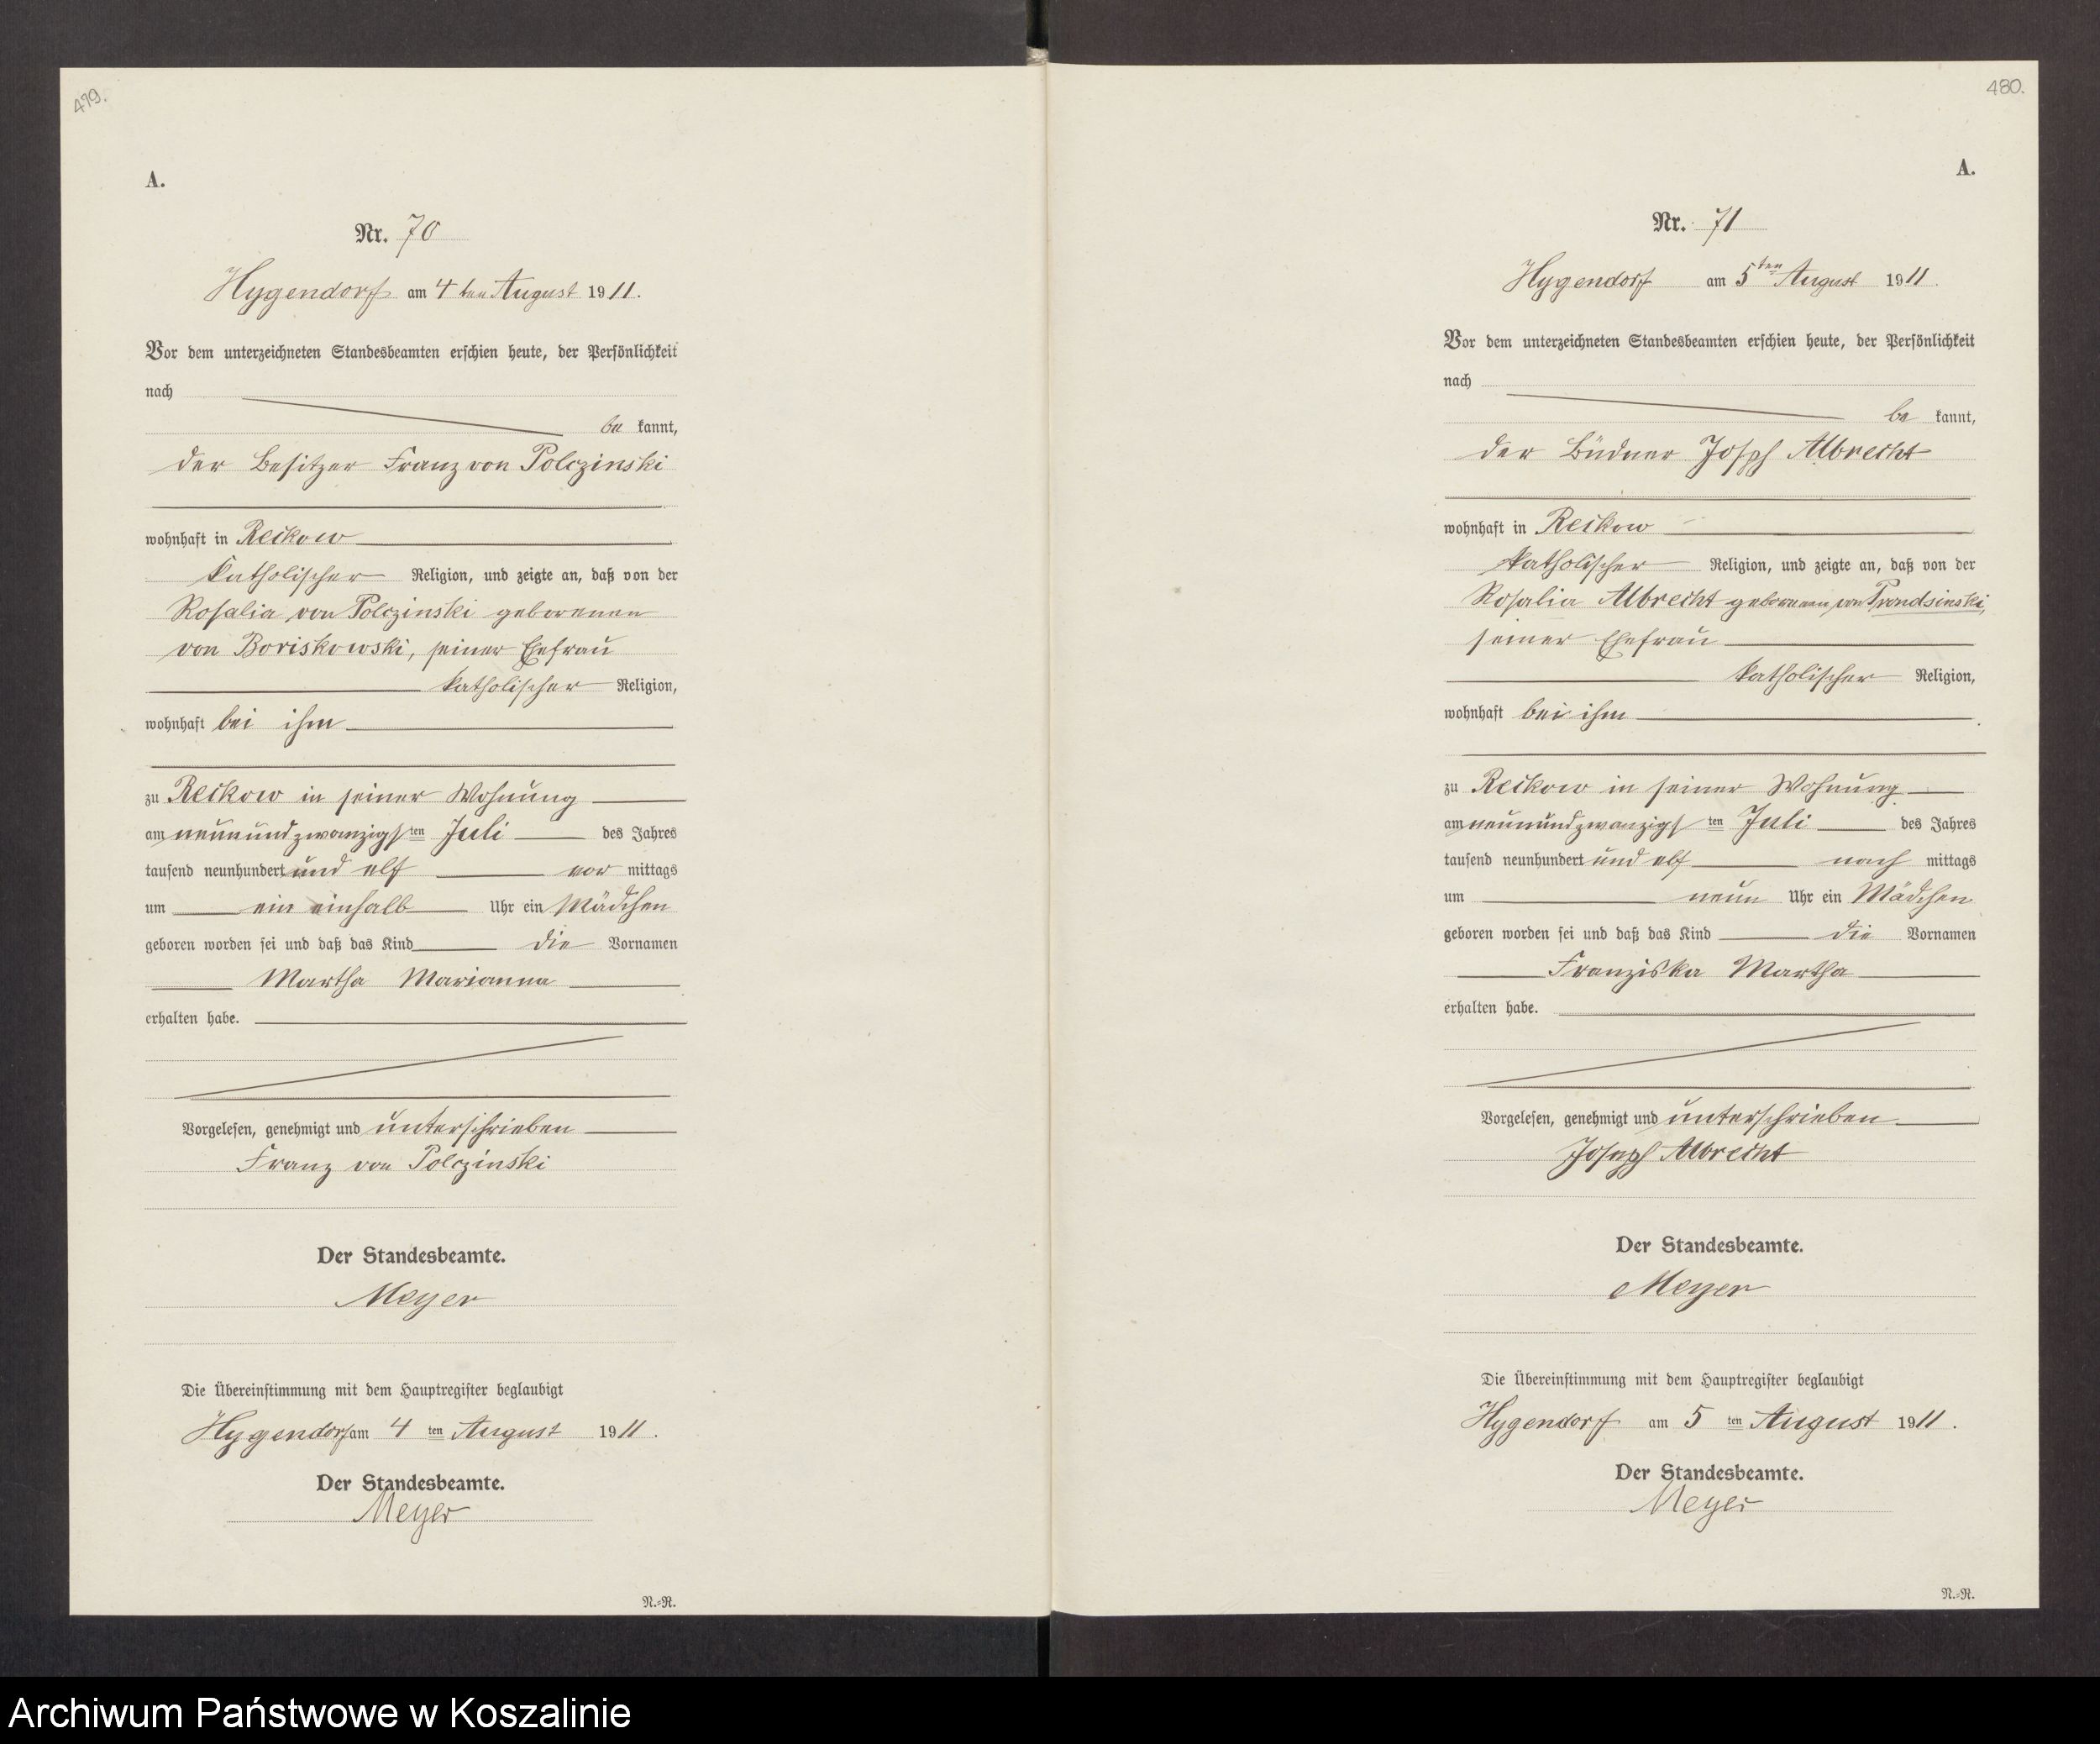 479.
A.
Nr. 70
Hygendorf am 4 ten August 1911.
Vor dem unterzeichneten Standesbeamten erschien heute, der Persönlichkeit
nach
be kannt,
der Besitzer Franz von Polczinski
wohnhaft in Reckow
katholischer Religion, und zeigte an, daß von der
Rosalia von Polczinski geborenen
von Boriskowski, seiner Ehefrau
katholischer Religion,
wohnhaft bei ihm
zu Reckow in seiner Wohnung
am neunundzwanzigs ten Juli des Jahres
tausend neunhundert und elf vor mittags
um ein einhalb Uhr ein Mädchen
geboren worden sei und daß das Kind die Vornamen
Martha Marianna
erhalten habe.
Vorgelesen, genehmigt und unterschrieben
Franz von Polczinski
Der Standesbeamte.
Meyer
Die Übereinstimmung mit dem Hauptregister beglaubigt
Hygendorf am 4 ten August 1911.
Der Standesbeamte.
Meyer
N.-R.
480.
A.
Nr. 71
Hygendorf am 5ten August 1911.
Vor dem unterzeichneten Standesbeamten erschien heute, der Persönlichkeit
nach
be kannt,
der Büdner Joseph Albrecht
wohnhaft in Reckow
katholischer Religion, und zeigte an, daß von der
Rosalia Albrecht geborenen von Prondsinski,
seiner Ehefrau
katholischer Religion,
wohnhaft bei ihm
zu Reckow in seiner Wohnung
am neunundzwanzigs ten Juli des Jahres
tausend neunhundert und elf nach mittags
um neun Uhr ein Mädchen
geboren worden sei und daß das Kind die Vornamen
Franziska Martha
erhalten habe.
Vorgelesen, genehmigt und unterschrieben
Joseph Albrecht
Der Standesbeamte.
Meyer
Die Übereinstimmung mit dem Hauptregister beglaubigt
Hygendorf am 5 ten August 1911.
Der Standesbeamte.
Meyer
N.-R.
Archiwum Państwowe w Koszalinie